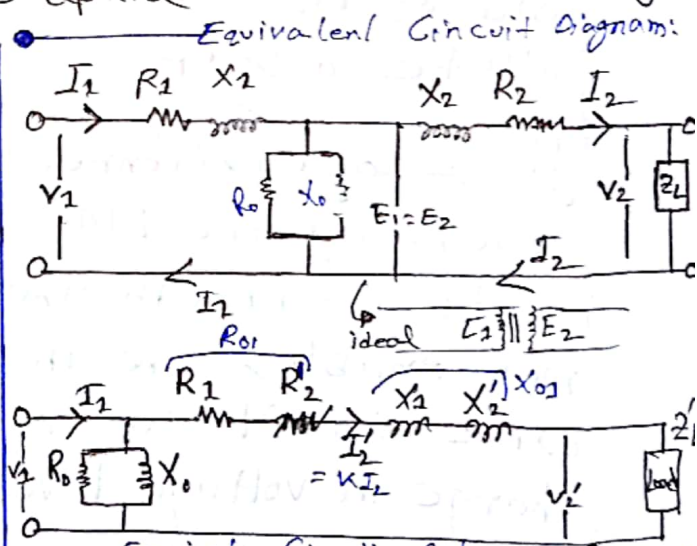 Equivalent Circuit Diagram:
I1 R1 X1 X2 R2 I2
V1 R0 X0 E1=E2 V2 ZL
I1 I2
ideal E1 E2
R01
I1 R1 R2' X1 X2' X01
V1 R0 X0 I2' V2' Load ZL'
= KI2